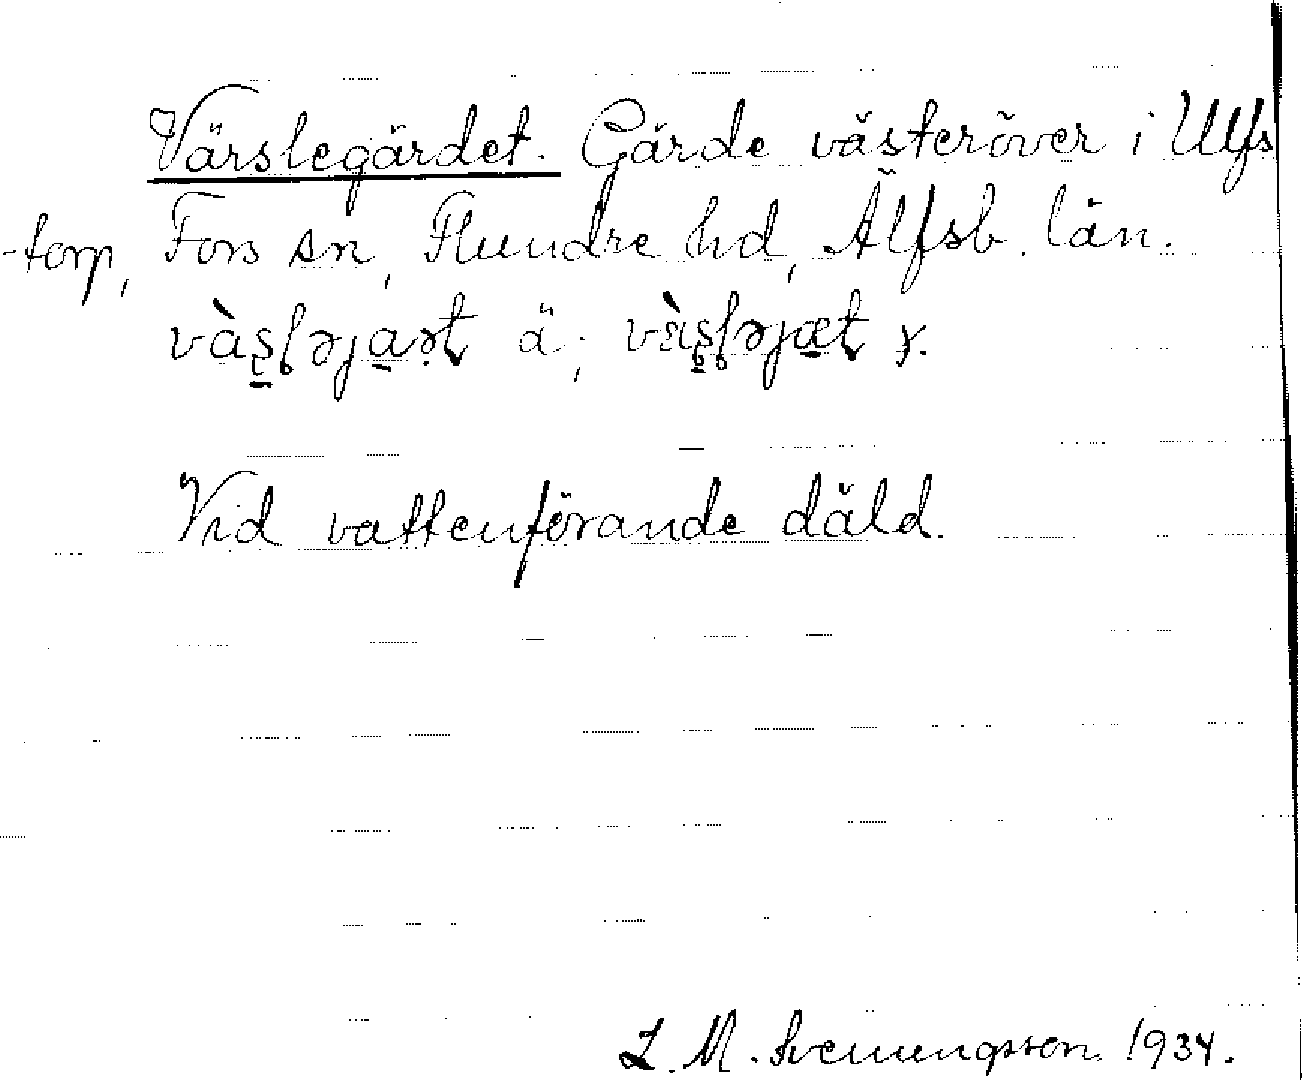 Värslegärdet. Gärde västeröver i Ulfs
-torp, Fors sn, Flundre hd, Älfsb. län.
ä;   y.
Vid vattenförande däld.
L. M. Svenungsson 1934.